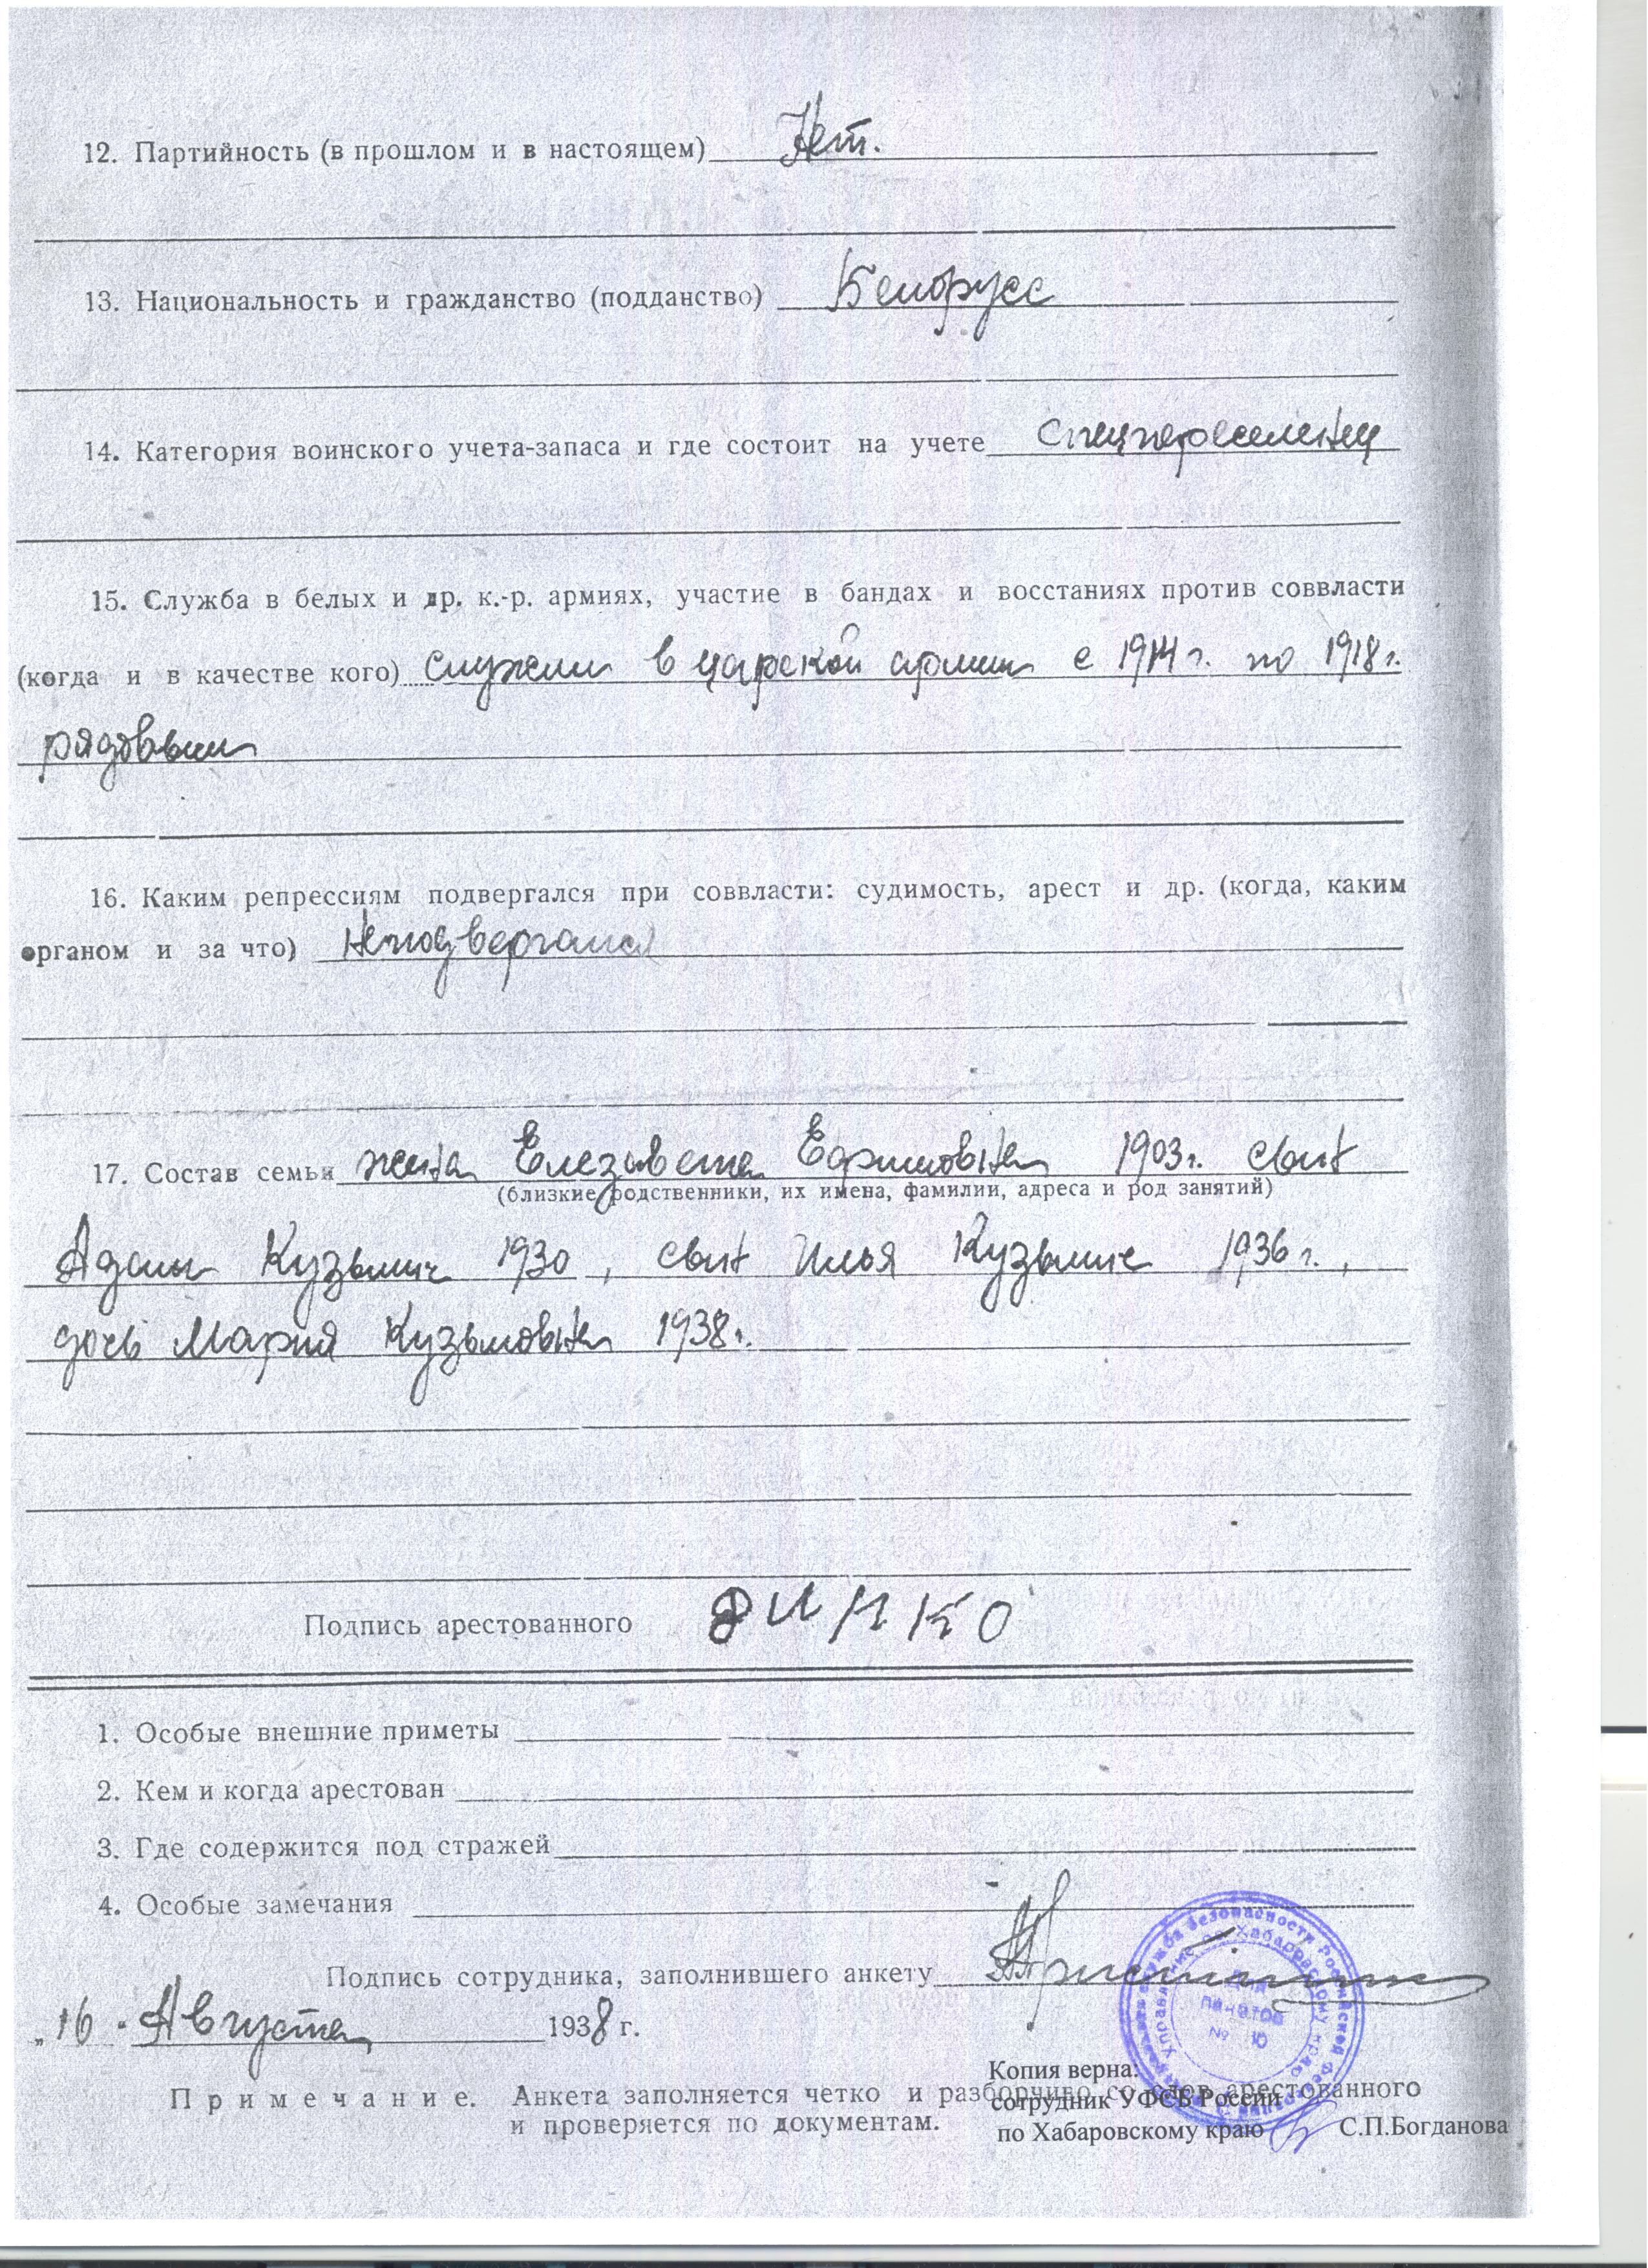 12. Партийность (в прошлом и в настоящем) Нет.
13. Национальность и гражданство (подданство) Белорусс
14. Категория воинского учета-запаса и где состоит на учете Спецпереселенец
15. Служба в белых и др. к.-р. армиях, участие в бандах и восстаниях против соввласти
(когда и в качестве кого) служил в царской армии с 1914 г. по 1918 г.
рядовым
16. Каким репрессиям подвергался при соввласти: судимость, арест и др. (когда, каким
органом и за что) Неподвергался
17. Состав семьи жена Елезавета Ефимовна 1903 г. сын
(близкие родственники, их имена, фамилии, адреса и род занятий)
Адам Кузьмич 1930, сын Илья Кузьмич 1936 г.,
дочь Мария Кузьмовна 1938 г.
Подпись арестованного
1. Особые внешние приметы
2. Кем и когда арестован
3. Где содержится под стражей
4. Особые замечания
Подпись сотрудника, заполнившего анкету
„16" Августа 1938 г.
Примечание. Анкета заполняется четко и разборчиво со слов арестованного
и проверяется по документам.
Копия верна:
сотрудник УФСБ России
по Хабаровскому краю С.П.Богданова